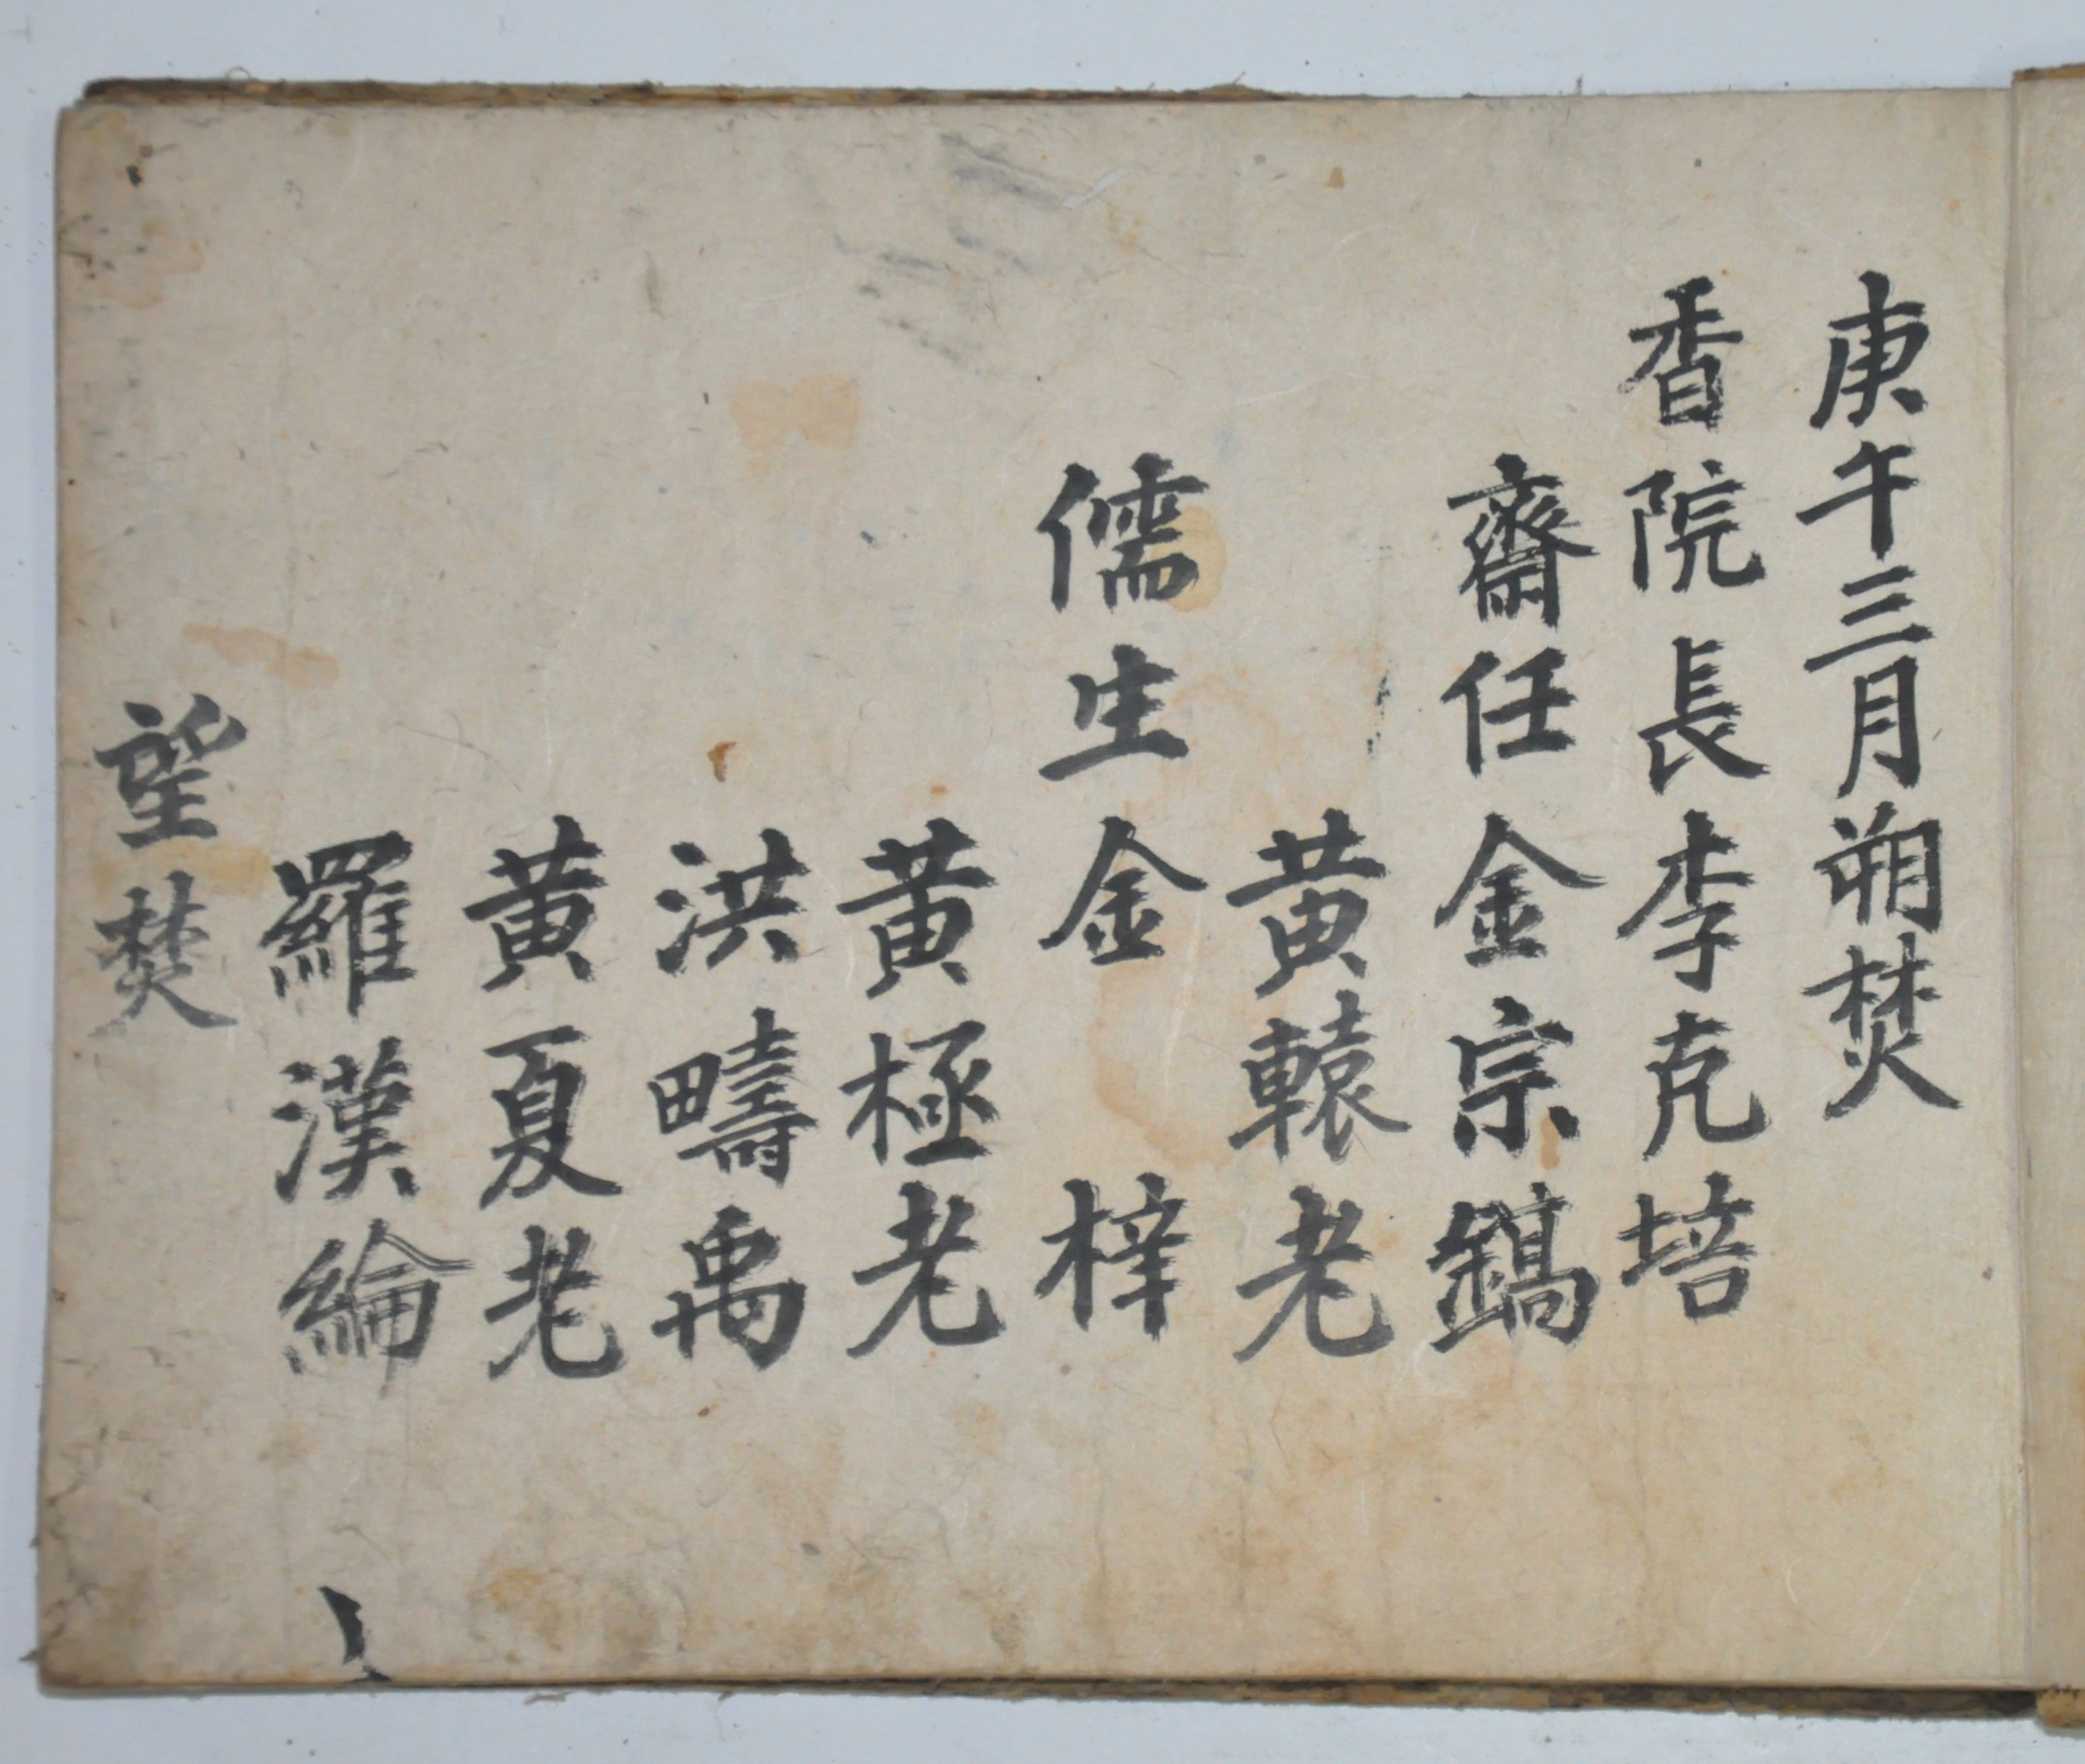 庚午三月朔焚
香院長李克培
齋任金宗鎬
黃轅老
儒生金梓
黃極老
洪疇禹
黃夏老
羅漢綸
望焚